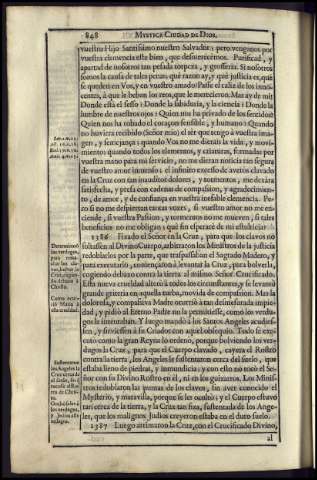 848 MYSTICA CIUDAD DE DIOS.
vuestro Hijo Santissimo nuestro Salvador; pero venganos por
vuestra clemencia este bien, que desmerecemos. Purificad, y
apartad de nosotros tan pesada torpeza, y grosseria. Si nosotros
somos la causa de tales penas; què razon ay, y què justicia es, què
se queden en Vos, y en vuestro amado? Passe el caliz de los inno-
centes, à que le beban los reos, que le merecieron. Mas ay de mi!
Donde està el sesso? Donde la sabiduria, y la ciencia? Donde la
lumbre de nuestros ojos? Quien nos ha privado de los sentidos?
Quien nos ha robado el coraçon sensible, y humano? Quando
no huviera recibido (Señor mio) el sèr que tengo à vuestra ima-
gen, y semejança; quando Vos no me dierais la vida, y movi-
miento; quando todos los elementos, y criaturas, formadas por
vuestra mano para mi servicio, no me dieran noticia tan segura
de vuestro amor immenso: el infinito excesso de averos clavado
en la Cruz con tan inauditos dolores, y tormentos, me dexàra
satisfecha, y presa con cadenas de compassion, y agradecimien-
to, de amor, y de confiança en vuestra inefable clemencia. Pe-
ro si no me despiertan tantas vozes, si vuestro amor no me en-
ciende, si vuestra Passion, y tormentos no me mueven, si tales
beneficios no me obligan; què fin esperarè de mi estulticia?
1386 Fixado el Señor en la Cruz, para que los clavos no
soltassen al Divino Cuerpo, arbitraron los Ministros de la justicia
redoblarlos por la parte, que traspassaban el Sagrado Madero, y
para executarlo, començaron à levantar la Cruz, para bolverla,
cogiendo debaxo contra la tierra al mismo Señor Crucificado.
Esta nueva crueldad alterò à todos los circunstantes, y se levantò
grande griteria en aquella turba, movida de compassion. Mas la
dolorida, y compassiva Madre ocurriò à tan desmesurada impie-
dad, y pidiò al Eterno Padre no la permitiesse, como los ver du-
gos la intentaban. Y luego mandò à los Santos Angeles acudies-
sen, y sirviessen à su Criador con aquel obsequio. Todo se exe-
cutò como la gran Reyna lo ordenò, porque bolviendo los ver-
dugos la Cruz, para que el Cuerpo clavado, cayera el Rostro
contra la tierra, los Angeles le sustentaron cerca del suelo, que
estaba lleno de piedras, è inmundicia; y con esto no tocò el Se-
ñor con su Divino Rostro en èl, ni en los guixarros. Los Minis-
tros redoblaron las puntas de los clavos, sin aver conocido el
Mysterio, y maravilla, porque se les ocultò; y el Cuerpo estavo
tan cerca de la tierra, y la Cruz tan fixa, sustentada de los Ange-
les, que los malignos Judios creyeron estaba en el duro suelo.
1387 Luego arrimaron la Cruz, con el Crucificado Divino,
al
Determinarõ
los verdugos,
Christo.
Como acudiò
Maria à
esta crueldad.
Sustentaron
los Angeles la